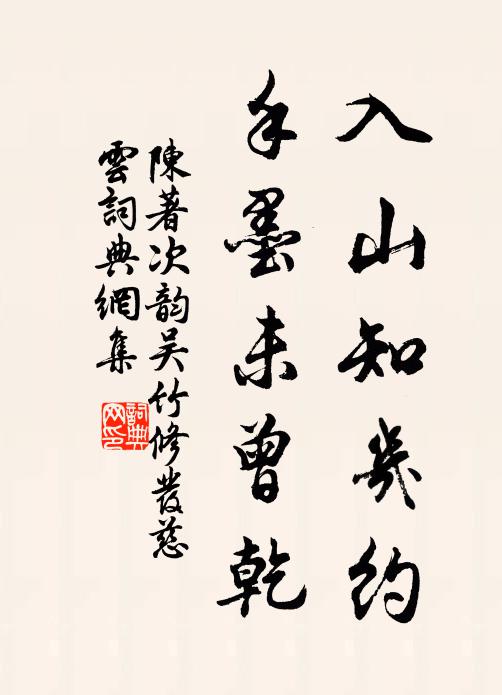 入山知幾約
手墨未曾乾
陳著次韵吴竹修發慈
雲詞典網集
詞典
网印